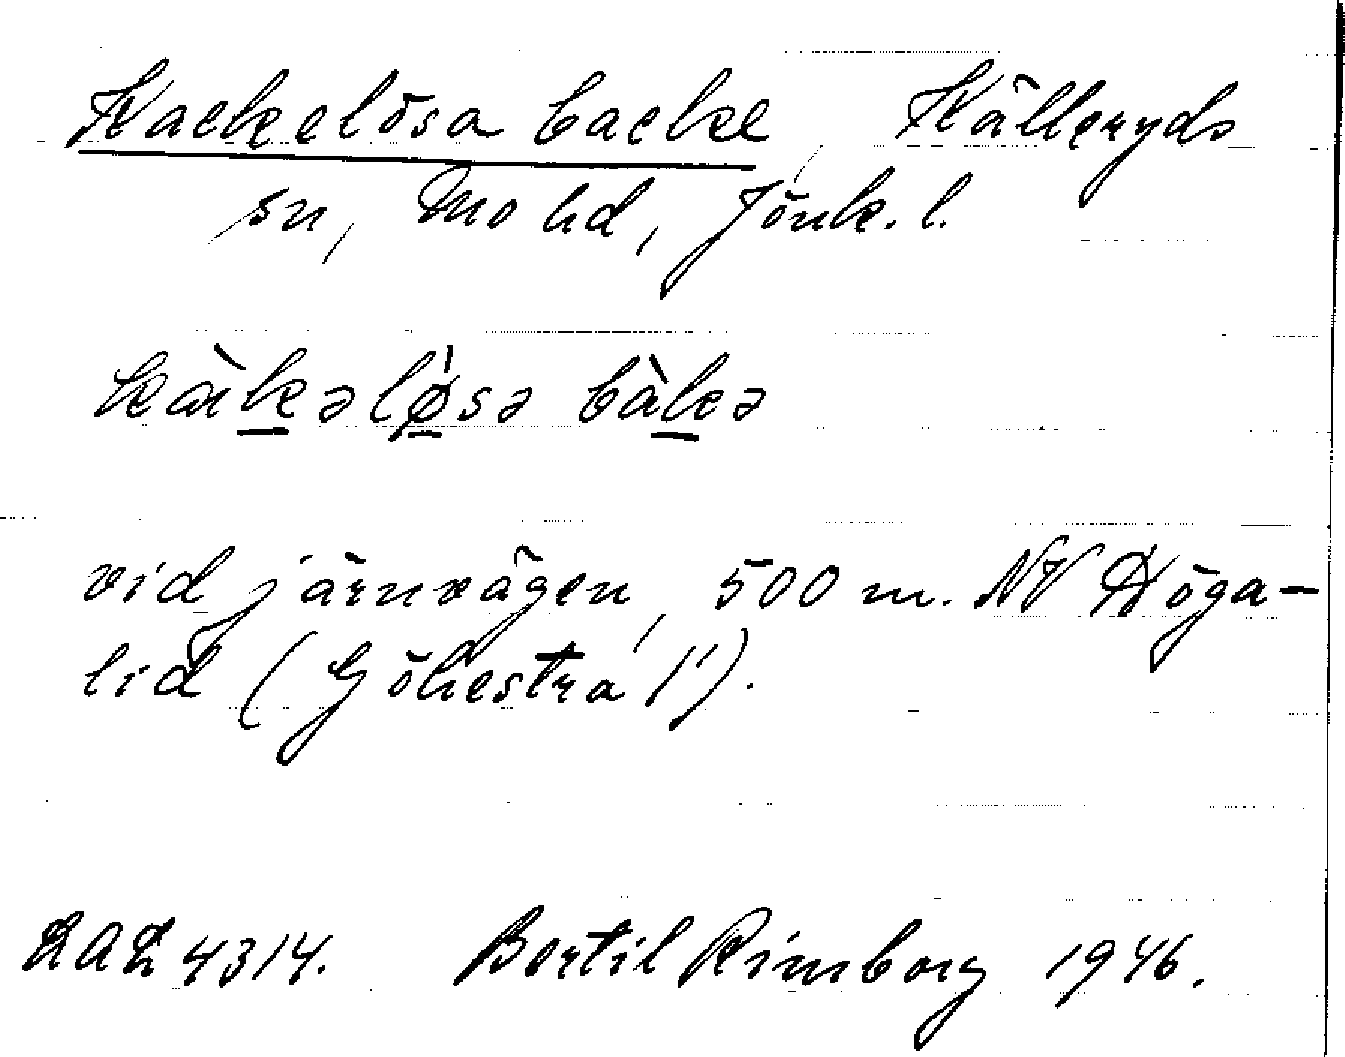 Kackelösa backe, Källeryds
sn, Mo hd, Jönk. l.
kàkəløsə bàkə
vid järnvägen, 500 m. NV Höga-
lid (Göhestra 1¹).
LAL 4314. Bertil Rimborg 1946.